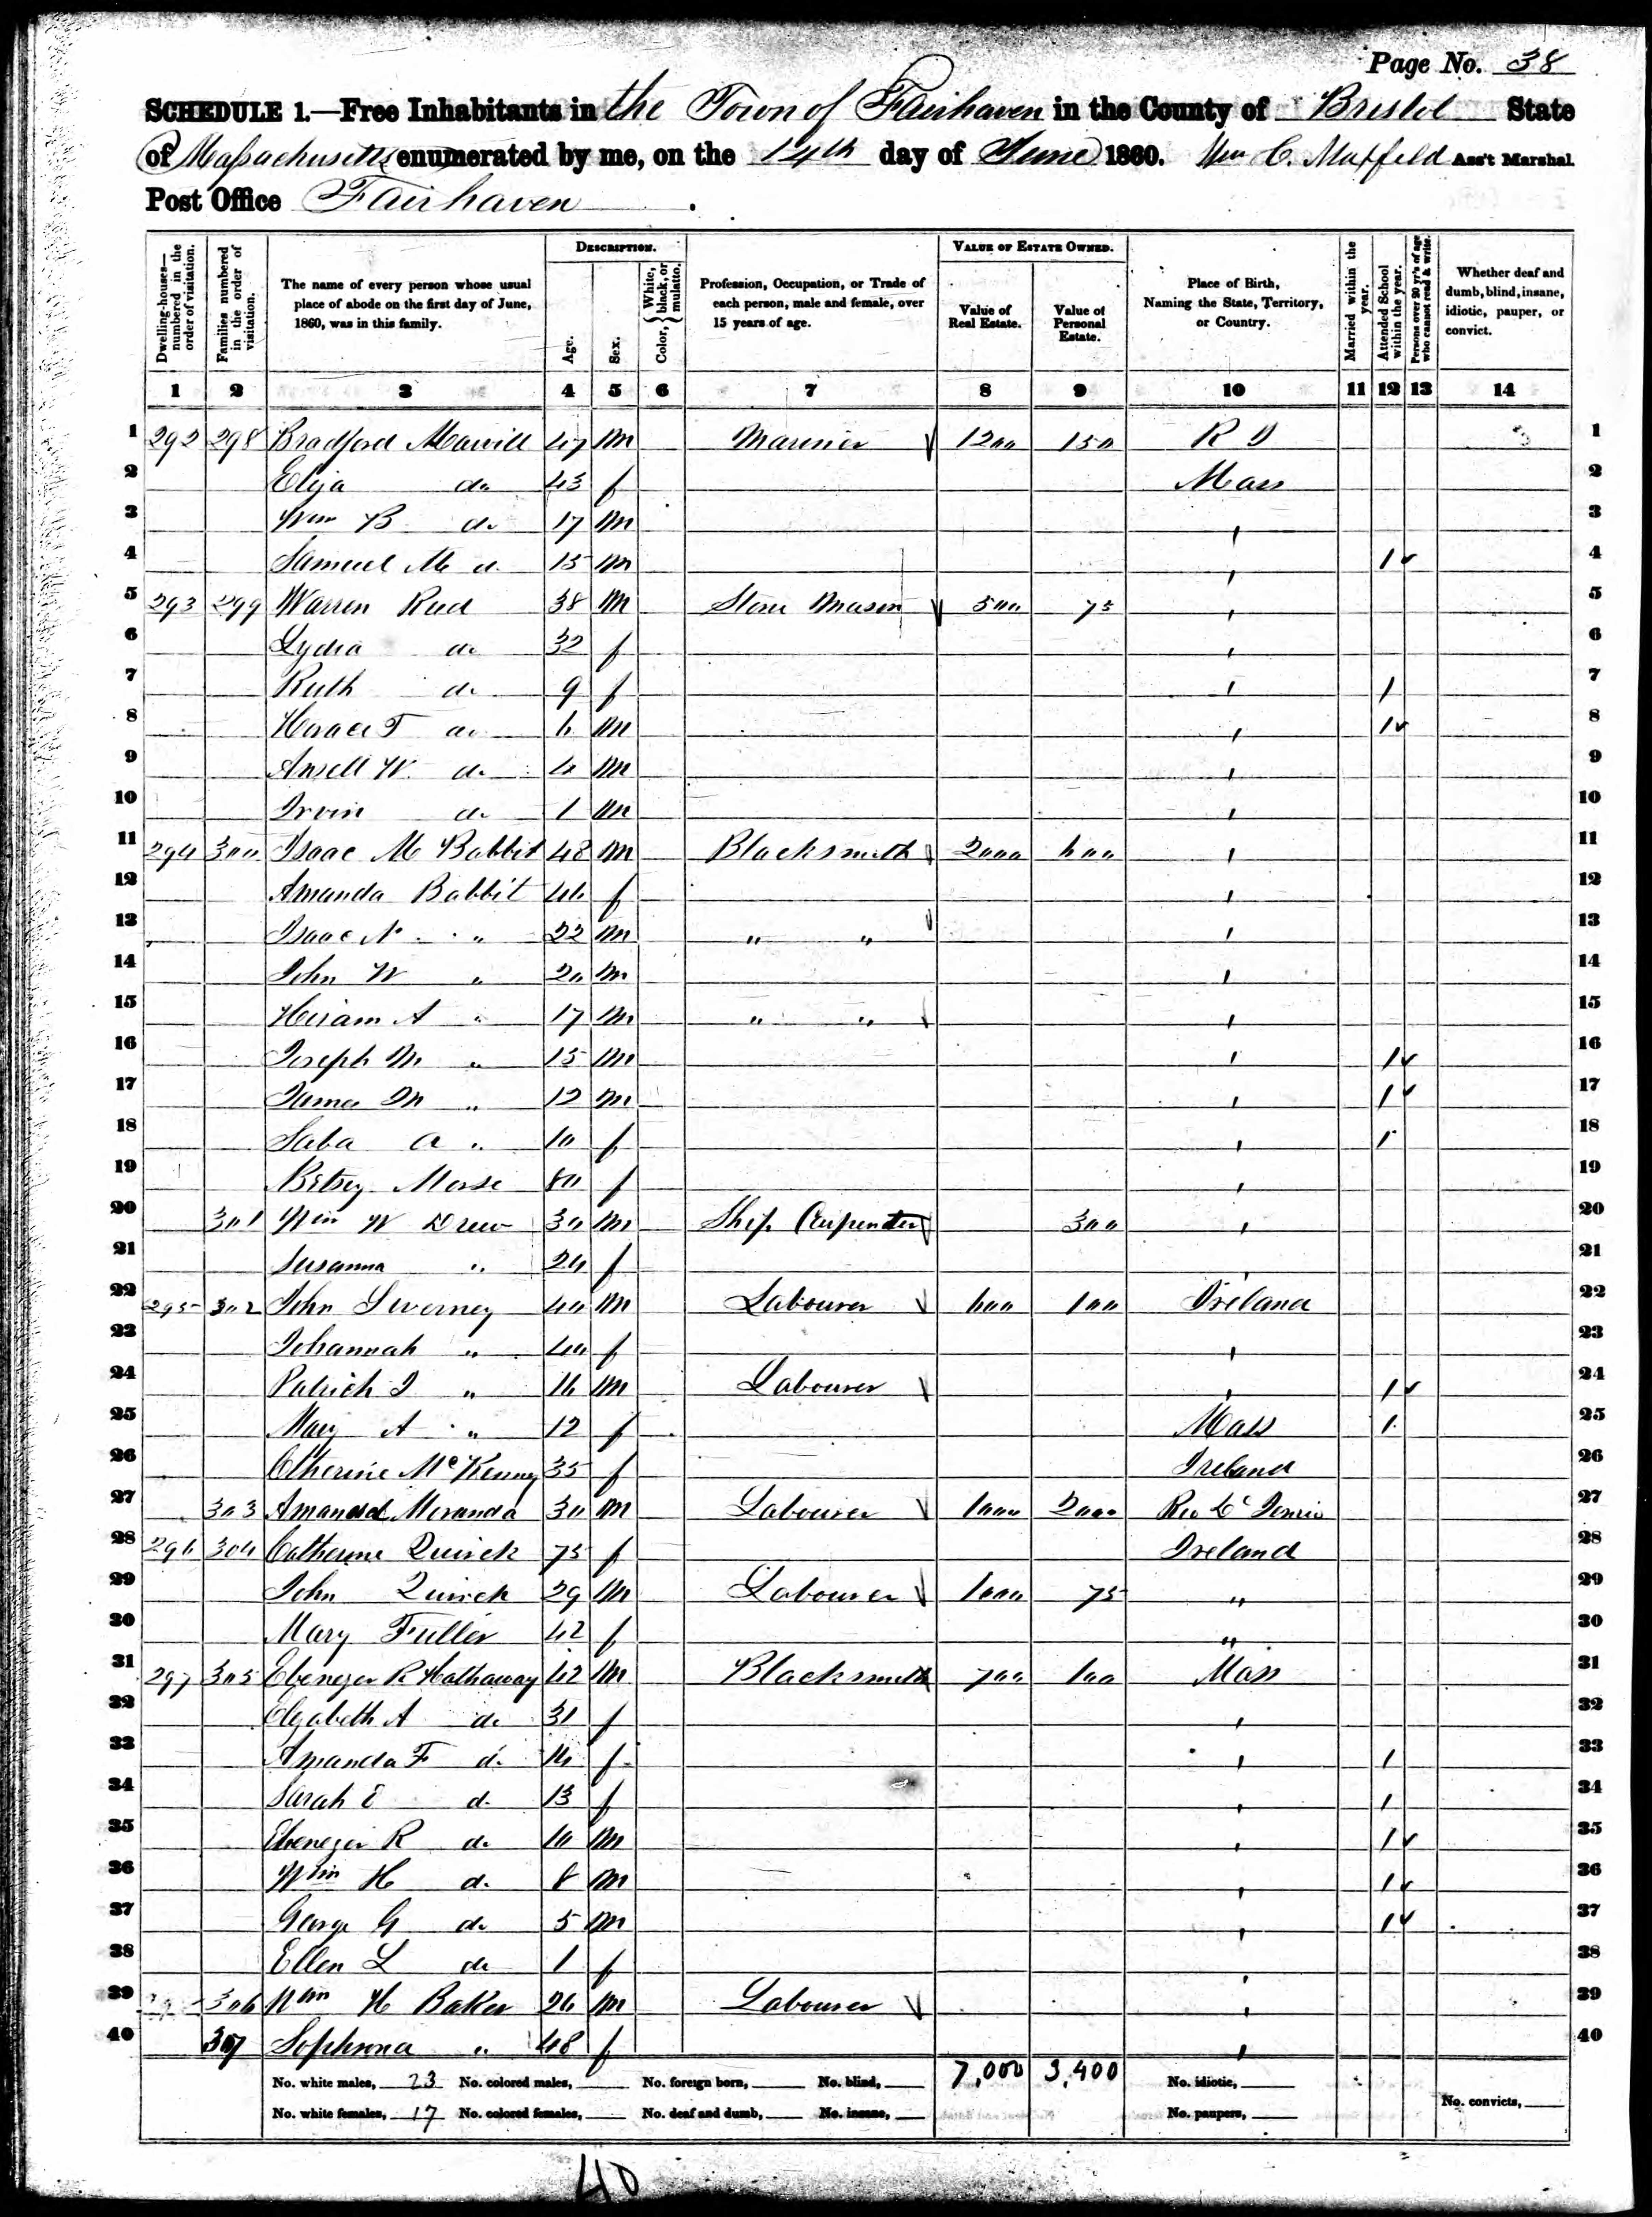 Page No. 38
SCHEDULE 1.—Free Inhabitants in the Town of Fairhaven in the County of Bristol State
of Massachusetts enumerated by me, on the 14th day of June 1860. Wm C. Maxfield Ass't Marshal
Post Office Fairhaven.
Dwelling-houses—numbered in the order of visitation. Families numbered in the order of visitation. The name of every person whose usual place of abode on the first day of June, 1860, was in this family. DESCRIPTION. Age. Sex. Color, {White, black, or mulatto. Profession, Occupation, or Trade of each person, male and female, over 15 years of age. VALUE OF ESTATE OWNED. Value of Real Estate. Value of Personal Estate. Place of Birth, Naming the State, Territory, or Country. Married within the year. Attended School within the year. Persons over 20 yr's of age who cannot read & write. Whether deaf and dumb, blind, insane, idiotic, pauper, or convict.
1 2 3 4 5 6 7 8 9 10 11 12 13 14
1 292 298 Bradford 47 m Mariner 1200 150 R I 1
2 Eliza do 43 f Mass 2
3 Wm B do 17 m 3
4 Samuel M d. 15 m 1 4
5 293 299 Warren Reed 38 M Stone Mason 500 75 5
6 Lydia do 32 f 6
7 Ruth do 9 f 1 7
8 Horace T do 6 m 1 8
9 Ansell W. do 4 m 9
10 Irvin do 1 m 10
11 294 300 Isaac M Babbit 48 m Blacksmith 2000 600 11
12 Amanda Babbit 46 f 12
13 Isaac N " 22 m " " 13
14 John W " 20 m 14
15 Hiram A " 17 m " " 15
16 Joseph M " 15 m 1 16
17 James M " 12 m 1 17
18 Saba A " 10 f 1 18
19 Betsey Morse 80 f 19
20 301 Wm W Drew 30 m Ship Carpenter 300 20
21 Susanna " 24 f 21
22 295 302 John Sweeney 40 m Labourer 600 100 Ireland 22
23 Johannah " 40 f 23
24 Patrick J " 16 m Labourer 1 24
25 Mary A " 12 f Mass 1 25
26 Catherine McKenny 35 f Ireland 26
27 303 Meranda 30 m Labourer 1000 2000 27
28 296 304 Catherine Quirck 75 f Ireland 28
29 John Quirck 29 m Labourer 1000 75 " 29
30 Mary Fuller 42 f " 30
31 297 305 Ebenezer R Hathaway 42 m Blacksmith 700 100 Mass 31
32 Elizabeth A do 31 f 32
33 Amanda F do 14 f 1 33
34 Sarah E d. 13 f 1 34
35 Ebenezer R do 10 m 1 35
36 Wm H d. 8 m 1 36
37 George G do 5 m 1 37
38 Ellen L do 1 f 38
39 306 Wm H Baker 26 m Labourer 39
40 307 Sophrona " 48 f 40
7,000 3,400
No. white males, 23 No. colored males, No. foreign born, No. blind, No. idiotic,
No. white females, 17 No. colored females, No. deaf and dumb, No. insane, No. paupers, No. convicts,
40